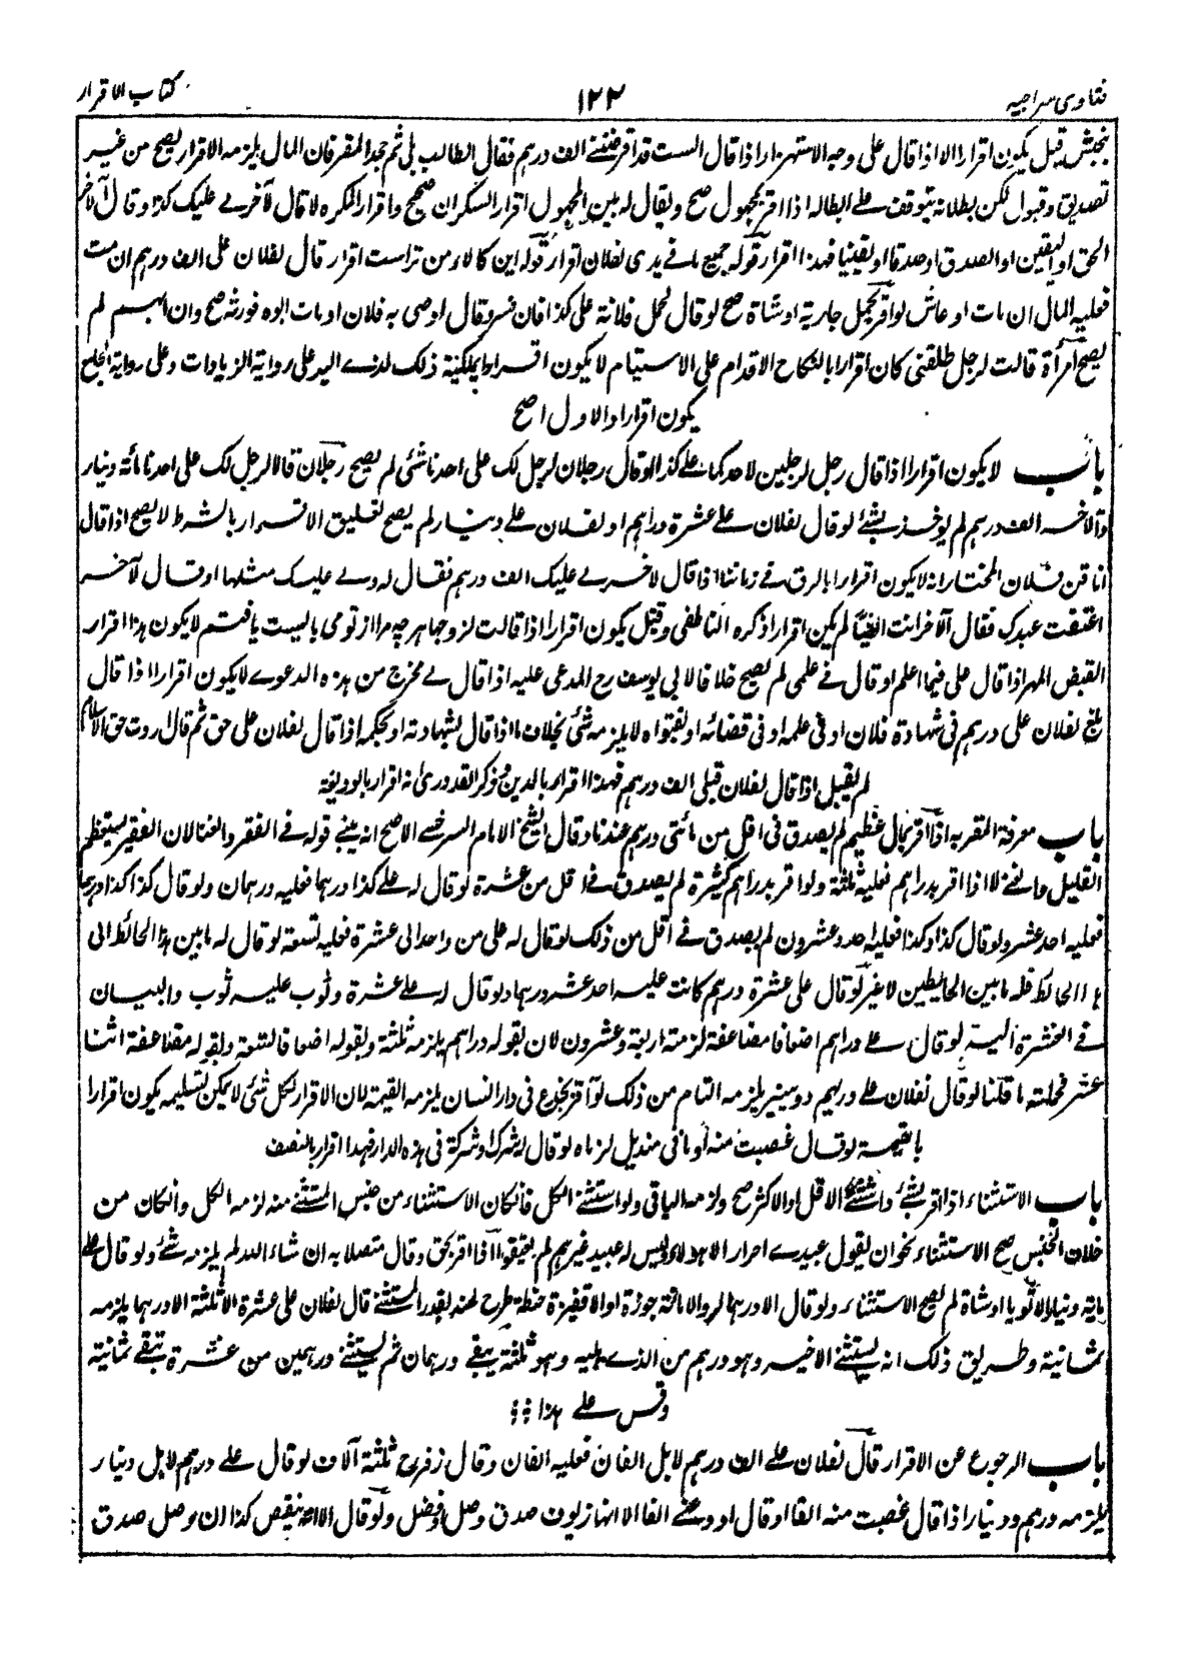 فتاوى سراجيه
١٢٢
كتاب الاقرار
قيل يكون اقرارا الا اذا قال على وجه الاستهزاء اذا قال الست قد اقرضتنى الف درهم فقال الطالب بلى ثم جحد المقر فان المال يلزمه الاقرار يصح من غير
تصديق وقبول لكن بطلانه يتوقف على ابطاله اذا اقر بمجهول صح ويقال له بين المجهول اقرار السكران صحيح واقرار المكره لا قال لآخر لى عليك كذا وقال الآخر
الحق او اليقين او الصدق او صدقا او يقينا فهذا اقرار قوله جميع ما فى يدى لفلان اقرار قوله اين كالاء من تراست اقرار قال لفلان على الف درهم ان مت
فعليه المال ان مات او عاش لو اقر بحمل جارية او شاة صح لو قال لحمل فلانة على كذا فان فسر وقال اوصى به فلان او مات ابوه فورثه صح وان ابهم لم
يصح امرأة قالت لرجل طلقنى كان اقرارا بالنكاح الاقدام على الاستيام لا يكون اقرارا بملكية ذلك لذى اليد على رواية الزيادات وعلى رواية الجامع
يكون اقرارا والاول اصح
باب لا يكون اقرارا اذا قال رجل لرجلين لاحدكما على كذا لو قال رجلان لرجل لك على احدنا شئ لم يصح رجلان قالا لرجل لك على احدنا مائة دينار
والآخر الف درهم لم يوخذ بشئ لو قال لفلان على عشرة دراهم او لفلان على دينار لم يصح تعليق الاقرار بالشرط لا يصح اذا قال
انا قن فلان المختار انه لا يكون اقرارا بالرق فى زماننا اذا قال لآخر لى عليك الف درهم فقال له ولى عليك مثلها او قال لآخر
اعتقت عبدك فقال الآخر انت ايضا لم يكن اقرارا ذكره الناطفى وقيل يكون اقرارا اذا قالت لزوجها هرچه مرا از تو مى بايست يافتم لا يكون هذا اقرار
القبض المهر اذا قال على فيما اعلم او قال فى علمى لم يصح خلافا لابى يوسف رح المدعى عليه اذا قال لى مخرج من هذه الدعوى لا يكون اقرارا اذا قال
لفلان على درهم فى شهادة فلان او فى علمه او فى قضائه او بفتواه لا يلزمه شئ بخلاف ما اذا قال بشهادته او بحكمه اذا قال لفلان على حق ثم قال اردت حق الاسلام
لم يقبل اذا قال لفلان قبلى الف درهم فهذا اقرار بالدين وذكر القدورى انه اقرار بالوديعة
باب معرفة المقر به اذا اقر بمال عظيم لم يصدق فى اقل من مائتى درهم عندنا وقال الشيخ الامام السرخسى الاصح انه يبنى قوله فى الفقر والغنا لان الفقير يستعظم
القليل والغنى لا اذا اقر بدراهم فعليه ثلثة ولو اقر بدراهم كثيرة لم يصدق فى اقل من عشرة لو قال له على كذا درهما فعليه درهمان ولو قال كذا كذا درهما
فعليه احد عشر ولو قال كذا وكذا فعليه احد وعشرون لم يصدق فى اقل من ذلك لو قال له على من واحد الى عشرة فعليه تسعة لو قال له ما بين هذا الحائط الى
هذا الحائط فله ما بين الحايطين لا غير لو قال على عشرة درهم كانت عليه احد عشر درهما ولو قال له على عشرة وثوب عليه ثوب والبيان
فى العشرة اليه لو قال على دراهم اضعافا مضاعفة لزمته اربعة وعشرون لان بقوله دراهم يلزمه ثلثة وبقوله اضعافا تسعة وبقوله مضاعفة اثنا
عشر فجملته ما قلنا لو قال لفلان على دريهم دوينير يلزمه التام من ذلك لو اقر بجذوع فى دار انسان يلزمه القيمة لان الاقرار لكل شئ لا يمكن تسليمه يكون اقرارا
بالقيمة لو قال غصبت منه ثوبا فى منديل لزماه لو قال له شرك وشركة فى هذه الدار فهذا اقرار بالنصف
باب الاستثناء اذا اقر بشئ واستثنى الاقل او الاكثر صح ولزمه الباقى ولو استثنى الكل فان كان الاستثناء من جنس المستثنى منه لزمه الكل وان كان من
خلاف الجنس صح الاستثناء نحو ان يقول عبيدى احرار الا هؤلاء وليس له عبيد غيرهم لم يعتقوا اذا اقر بحق وقال متصلا به ان شاء الله لم يلزمه شئ ولو قال على
ماية دينار الا ثوبا او شاة لم يصح الاستثناء ولو قال الا درهما او الا مائة جوزة او الا قفيزة حنطة طرح عنه بقدر المستثنى قال لفلان على عشرة الا ثلثة الا درهما يلزمه
ثمانية وطريق ذلك انه يستثنى الاخير وهو درهم من الذى يليه وهو ثلثة يبقى درهمان ثم يستثنى درهمين من عشرة تبقى ثمانية
وقس على هذا
باب الرجوع عن الاقرار قال لفلان على الف درهم لا بل الفان فعليه الفان وقال زفر رح ثلثة آلاف لو قال على درهم لا بل دينار
يلزمه درهم ودينار اذا قال غصبت منه الفا او قال اودعنى الفا الا انها زيوف صدق وصل او فصل ولو قال الا انه ينقص كذا ان وصل صدق